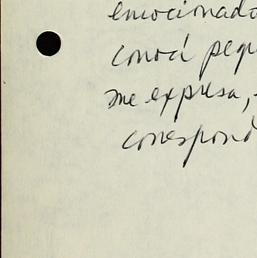 emocionado
conocí pequ
me expresa,
correspond